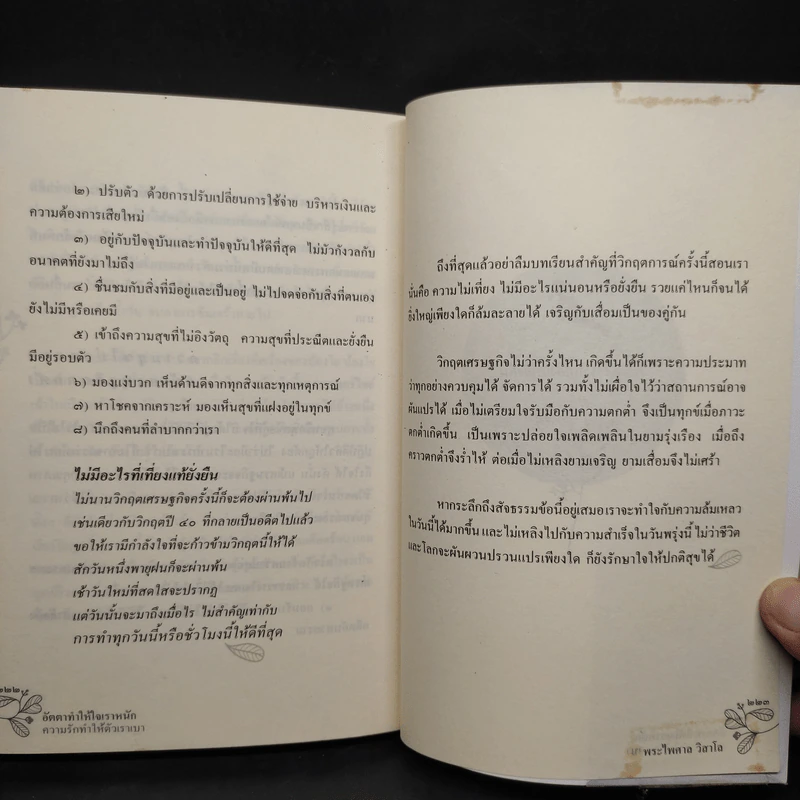 ๒) ปรับตัว ด้วยการปรับเปลี่ยนการใช้จ่าย บริหารเงินและ
ความต้องการเสียใหม่
๓) อยู่กับปัจจุบันและทำปัจจุบันให้ดีที่สุด ไม่มัวกังวลกับ
อนาคตที่ยังมาไม่ถึง
๔) ชื่นชมกับสิ่งที่มีอยู่และเป็นอยู่ ไม่ไปจดจ่อกับสิ่งที่ตนเอง
ยังไม่มีหรือเคยมี
๕) เข้าถึงความสุขที่ไม่อิงวัตถุ ความสุขที่ประณีตและยั่งยืน
มีอยู่รอบตัว
๖) มองแง่บวก เห็นด้านดีจากทุกสิ่งและทุกเหตุการณ์
๗) หาโชคจากเคราะห์ มองเห็นสุขที่แฝงอยู่ในทุกข์
๘) นึกถึงคนที่ลำบากกว่าเรา
ไม่มีอะไรที่เที่ยงแท้ยั่งยืน
ไม่นานวิกฤตเศรษฐกิจครั้งนี้ก็จะต้องผ่านพ้นไป
เช่นเดียวกับวิกฤตปี ๔๐ ที่กลายเป็นอดีตไปแล้ว
ขอให้เรามีกำลังใจที่จะก้าวข้ามวิกฤตนี้ให้ได้
สักวันหนึ่งพายุฝนก็จะผ่านพ้น
เช้าวันใหม่ที่สดใสจะปรากฏ
แต่วันนั้นจะมาถึงเมื่อไร ไม่สำคัญเท่ากับ
การทำทุกวันนี้หรือชั่วโมงนี้ให้ดีที่สุด
๒๒๒
อัตตาทำให้ใจเราหนัก
ความรักทำให้ตัวเราเบา
ถึงที่สุดแล้วอย่าลืมบทเรียนสำคัญที่วิกฤตการณ์ครั้งนี้สอนเรา
นั่นคือ ความไม่เที่ยง ไม่มีอะไรแน่นอนหรือยั่งยืน รวยแค่ไหนก็จนได้
ยิ่งใหญ่เพียงใดก็ล้มละลายได้ เจริญกับเสื่อมเป็นของคู่กัน
วิกฤตเศรษฐกิจไม่ว่าครั้งไหน เกิดขึ้นได้ก็เพราะความประมาท
ว่าทุกอย่างควบคุมได้ จัดการได้ รวมทั้งไม่เผื่อใจไว้ว่าสถานการณ์อาจ
ผันแปรได้ เมื่อไม่เตรียมใจรับมือกับความตกต่ำ จึงเป็นทุกข์เมื่อภาวะ
ตกต่ำเกิดขึ้น เป็นเพราะปล่อยใจเพลิดเพลินในยามรุ่งเรือง เมื่อถึง
คราวตกต่ำจึงร่ำไห้ ต่อเมื่อไม่เหลิงยามเจริญ ยามเสื่อมจึงไม่เศร้า
หากระลึกถึงสัจธรรมข้อนี้อยู่เสมอเราจะทำใจกับความล้มเหลว
ในวันนี้ได้มากขึ้น และไม่เหลิงไปกับความสำเร็จในวันพรุ่งนี้ ไม่ว่าชีวิต
และโลกจะผันผวนปรวนแปรเพียงใด ก็ยังรักษาใจให้ปกติสุขได้
๒๒๓
พระไพศาล วิสาโล